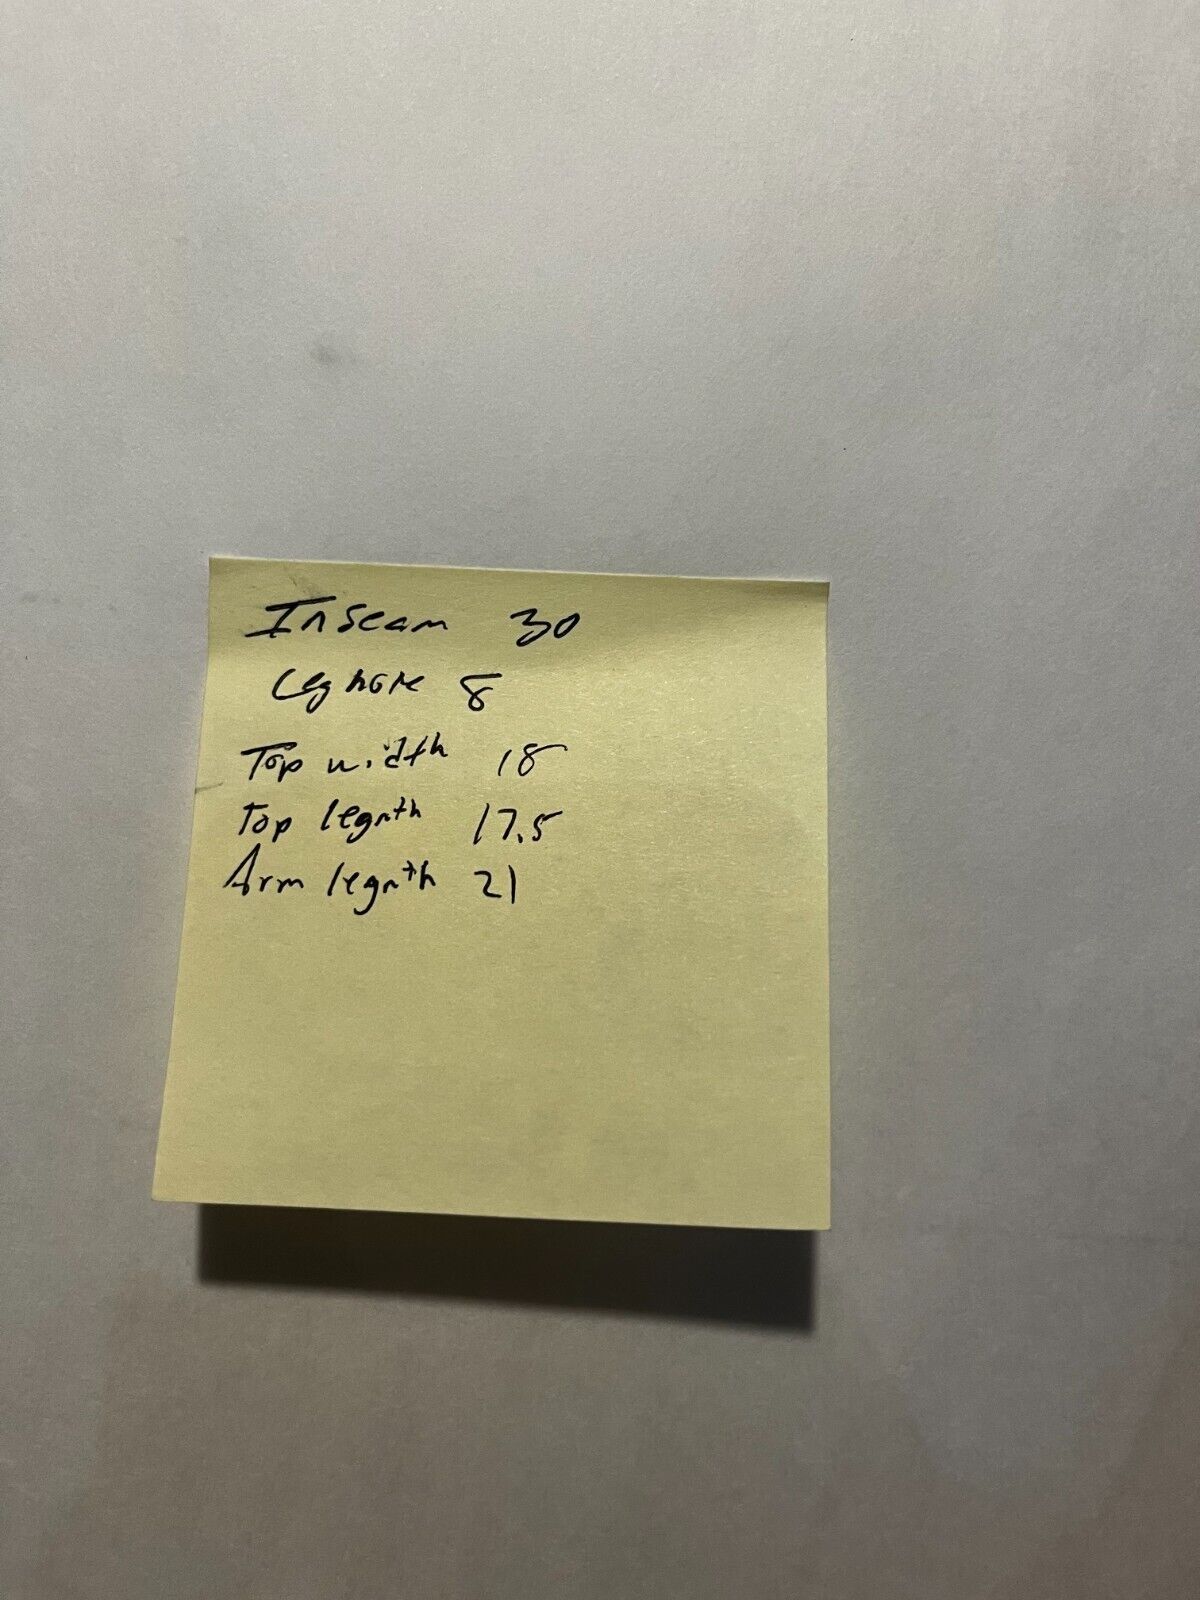 Inseam 30
Leg hole 8
Top width 18
Top legnth 17.5
Arm legnth 21